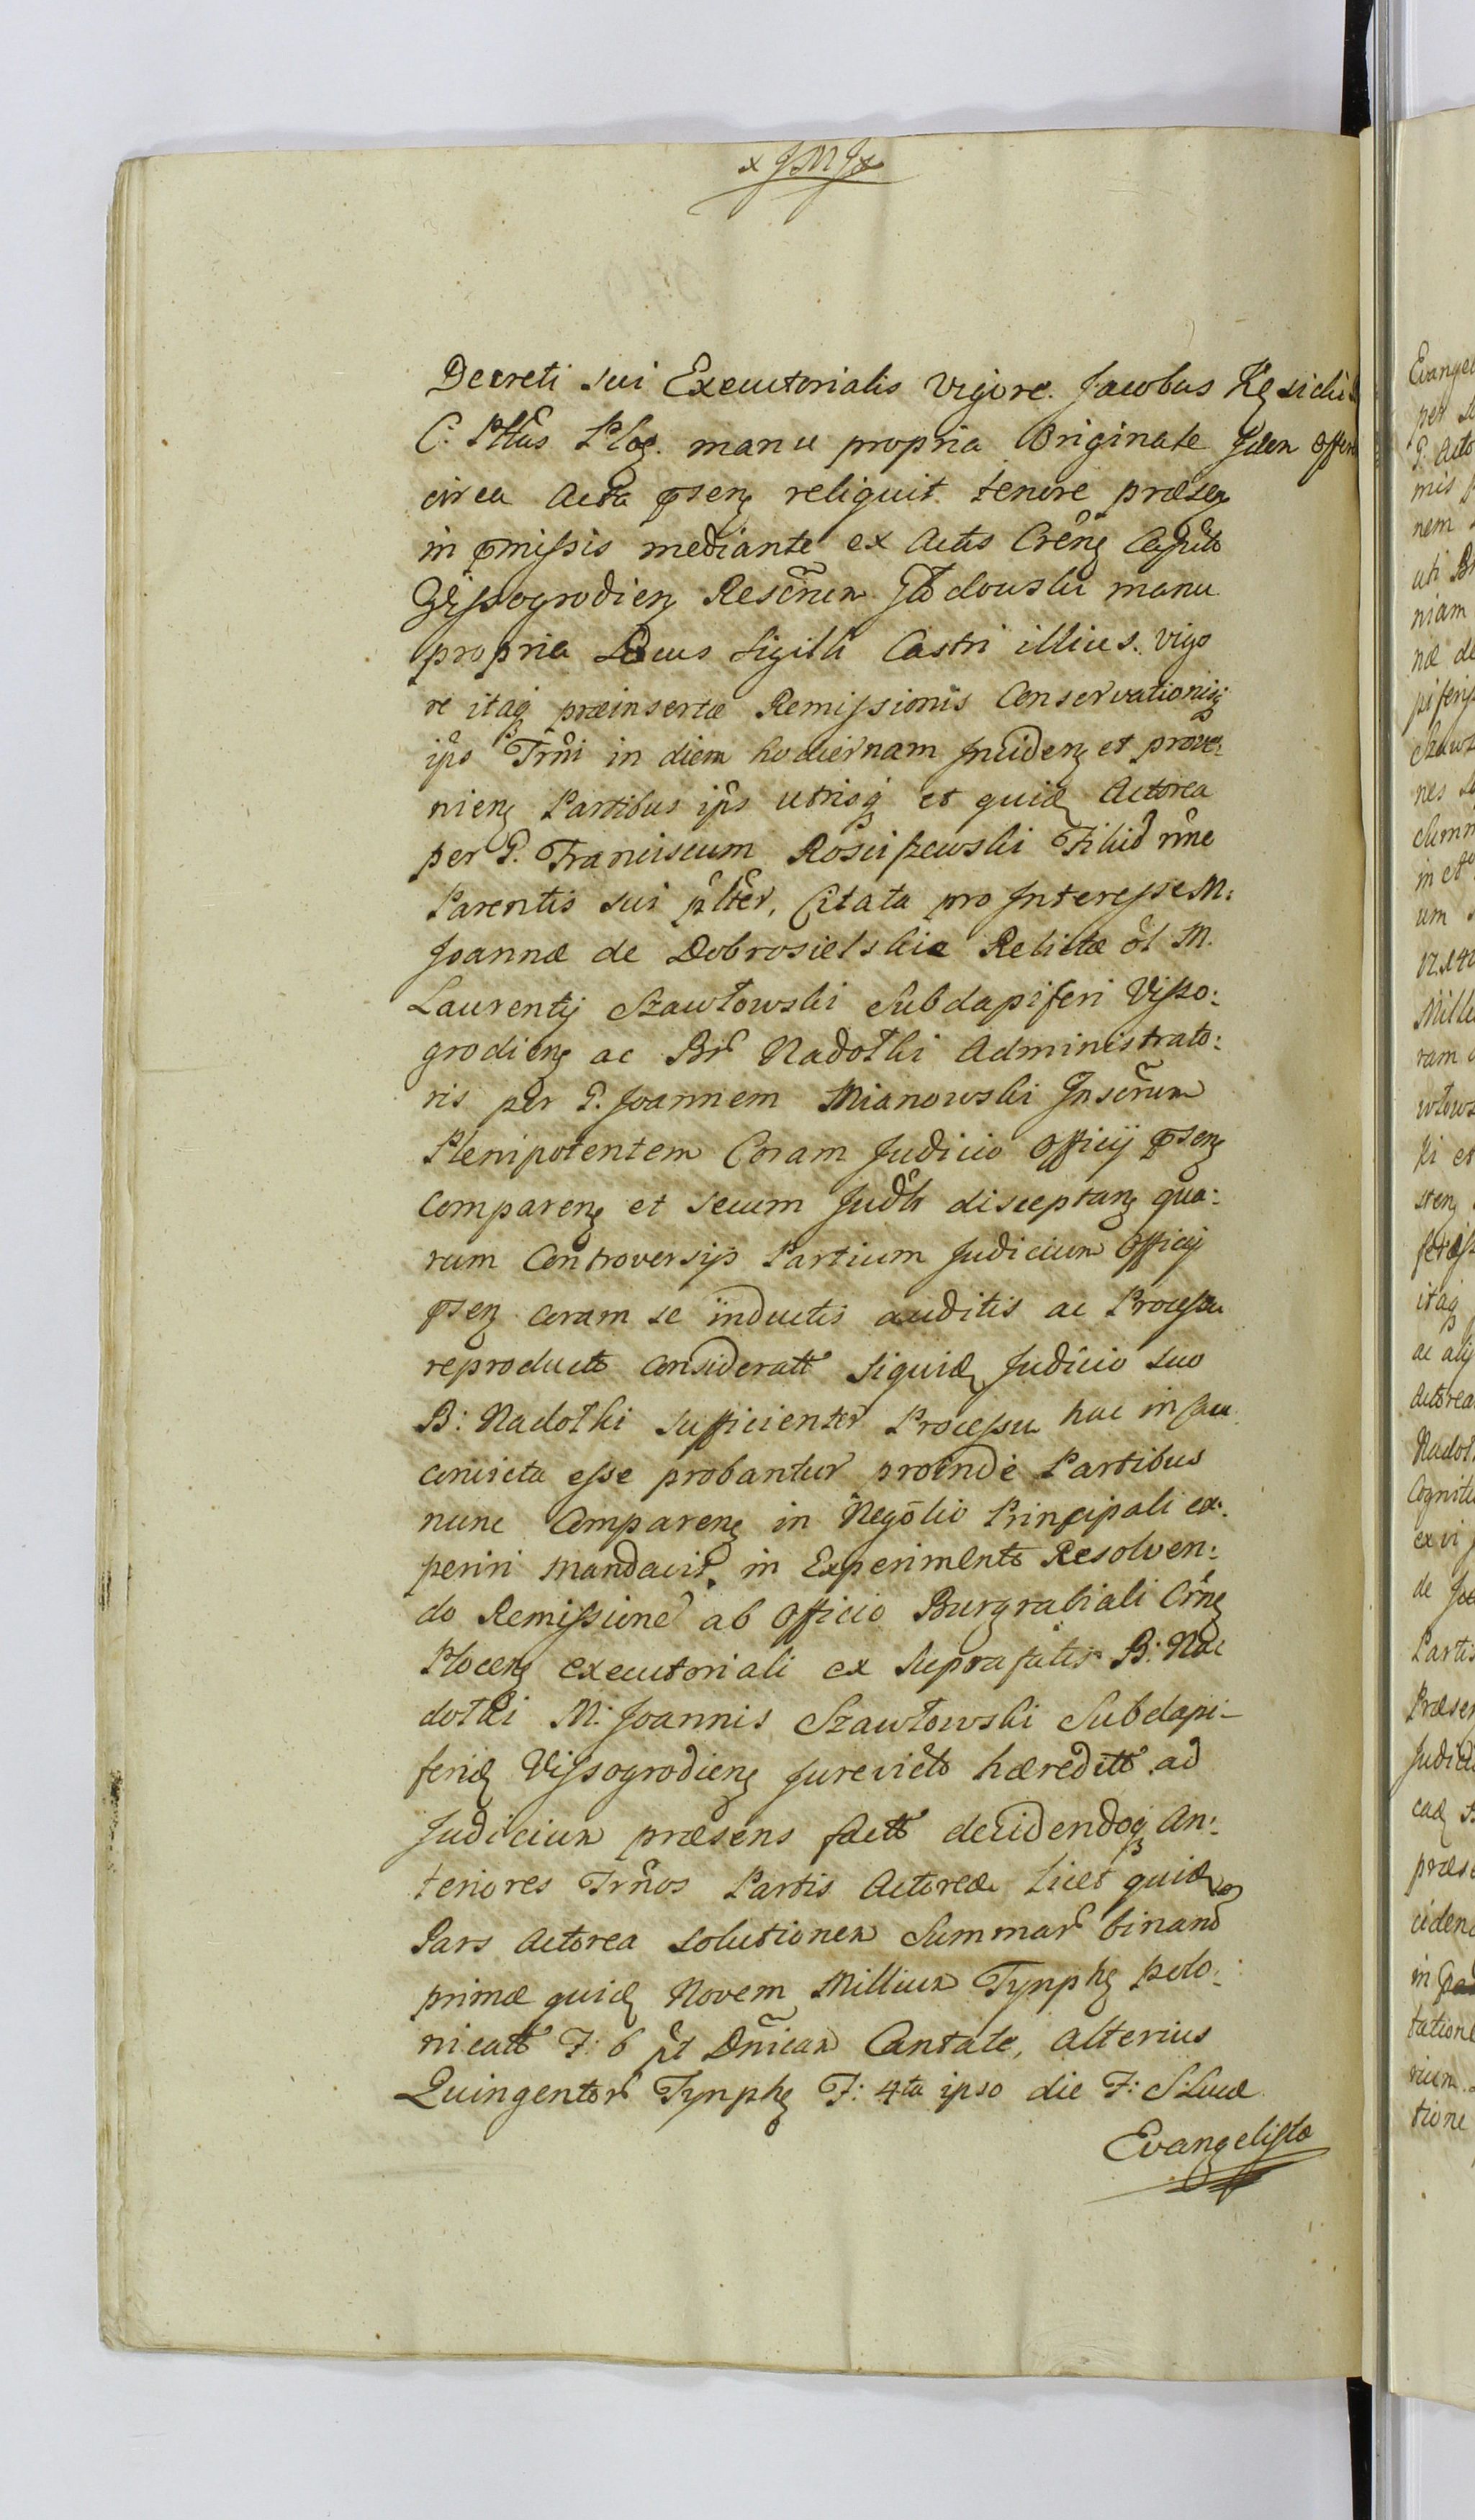 x JMJ x
Decreti sui Executorialis vigore. Jacobus
C. Pttus Ploc. manu propria Originate Idem Offere
circa Acta pseñ reliquit tenore præseñ
in pmissis mediante ex Actis Creñ Capito
Vissogrodieñ Rescrum manu
propria Locus Sigilli Castri illius. vigo
re itaq præinsertæ Remissionis Conservationisq
ips Trni in diem hodiernam Incideñ et prove:
nieñ Partibus ips utrisq et quid Actorea
per G. Franciscum Rosciszewski Filiũ nne
Parentis sui plter, Citata pro Interesse M:
Joannæ de Dobrosielskie Relictæ ol M.
Laurentij Szawłowski Subdapiferi Visso:
grodieñ ac Br Nadołki Administrato:
ris per G. Joannem Mianowski Inscrum
Plenipotentem Coram Judicio Officij pseñ
compareñ et secum Judlr disceptañ qua:
rum Controversijs Partium Judicium Officij
pseñ coram se inductis auditis ac Processu
reproducto considerato siquid Judicio suo
B: Nadołki sufficienter Processu hac in cau
convicta esse probantur proinde Partibus
nunc Compareñ in Negotio Principali ex:
periri mandavit, in Experimento Resolven:
do Remissione ab Officio Burgrabiali Crneñ
Ploceñ executoriali ex suprafatis B: Na
dołki M: Joannis Szawłowski Subdapi-
ferid Vissogrodieñ jurevicto hæredito ad
Judicium præsens facto decidendoq An:
teriores Trnos Partis Actoreæ licet quid
Pars Actorea solutionem Summar binarũ
primæ quid Novem Millium Tynpheñ polo:
nicato F: 6 pt Dnicam Cantate, alterius
Quingentor Tynpheñ F: 4ta ipso die F: S. Lucæ
Evangelistæ